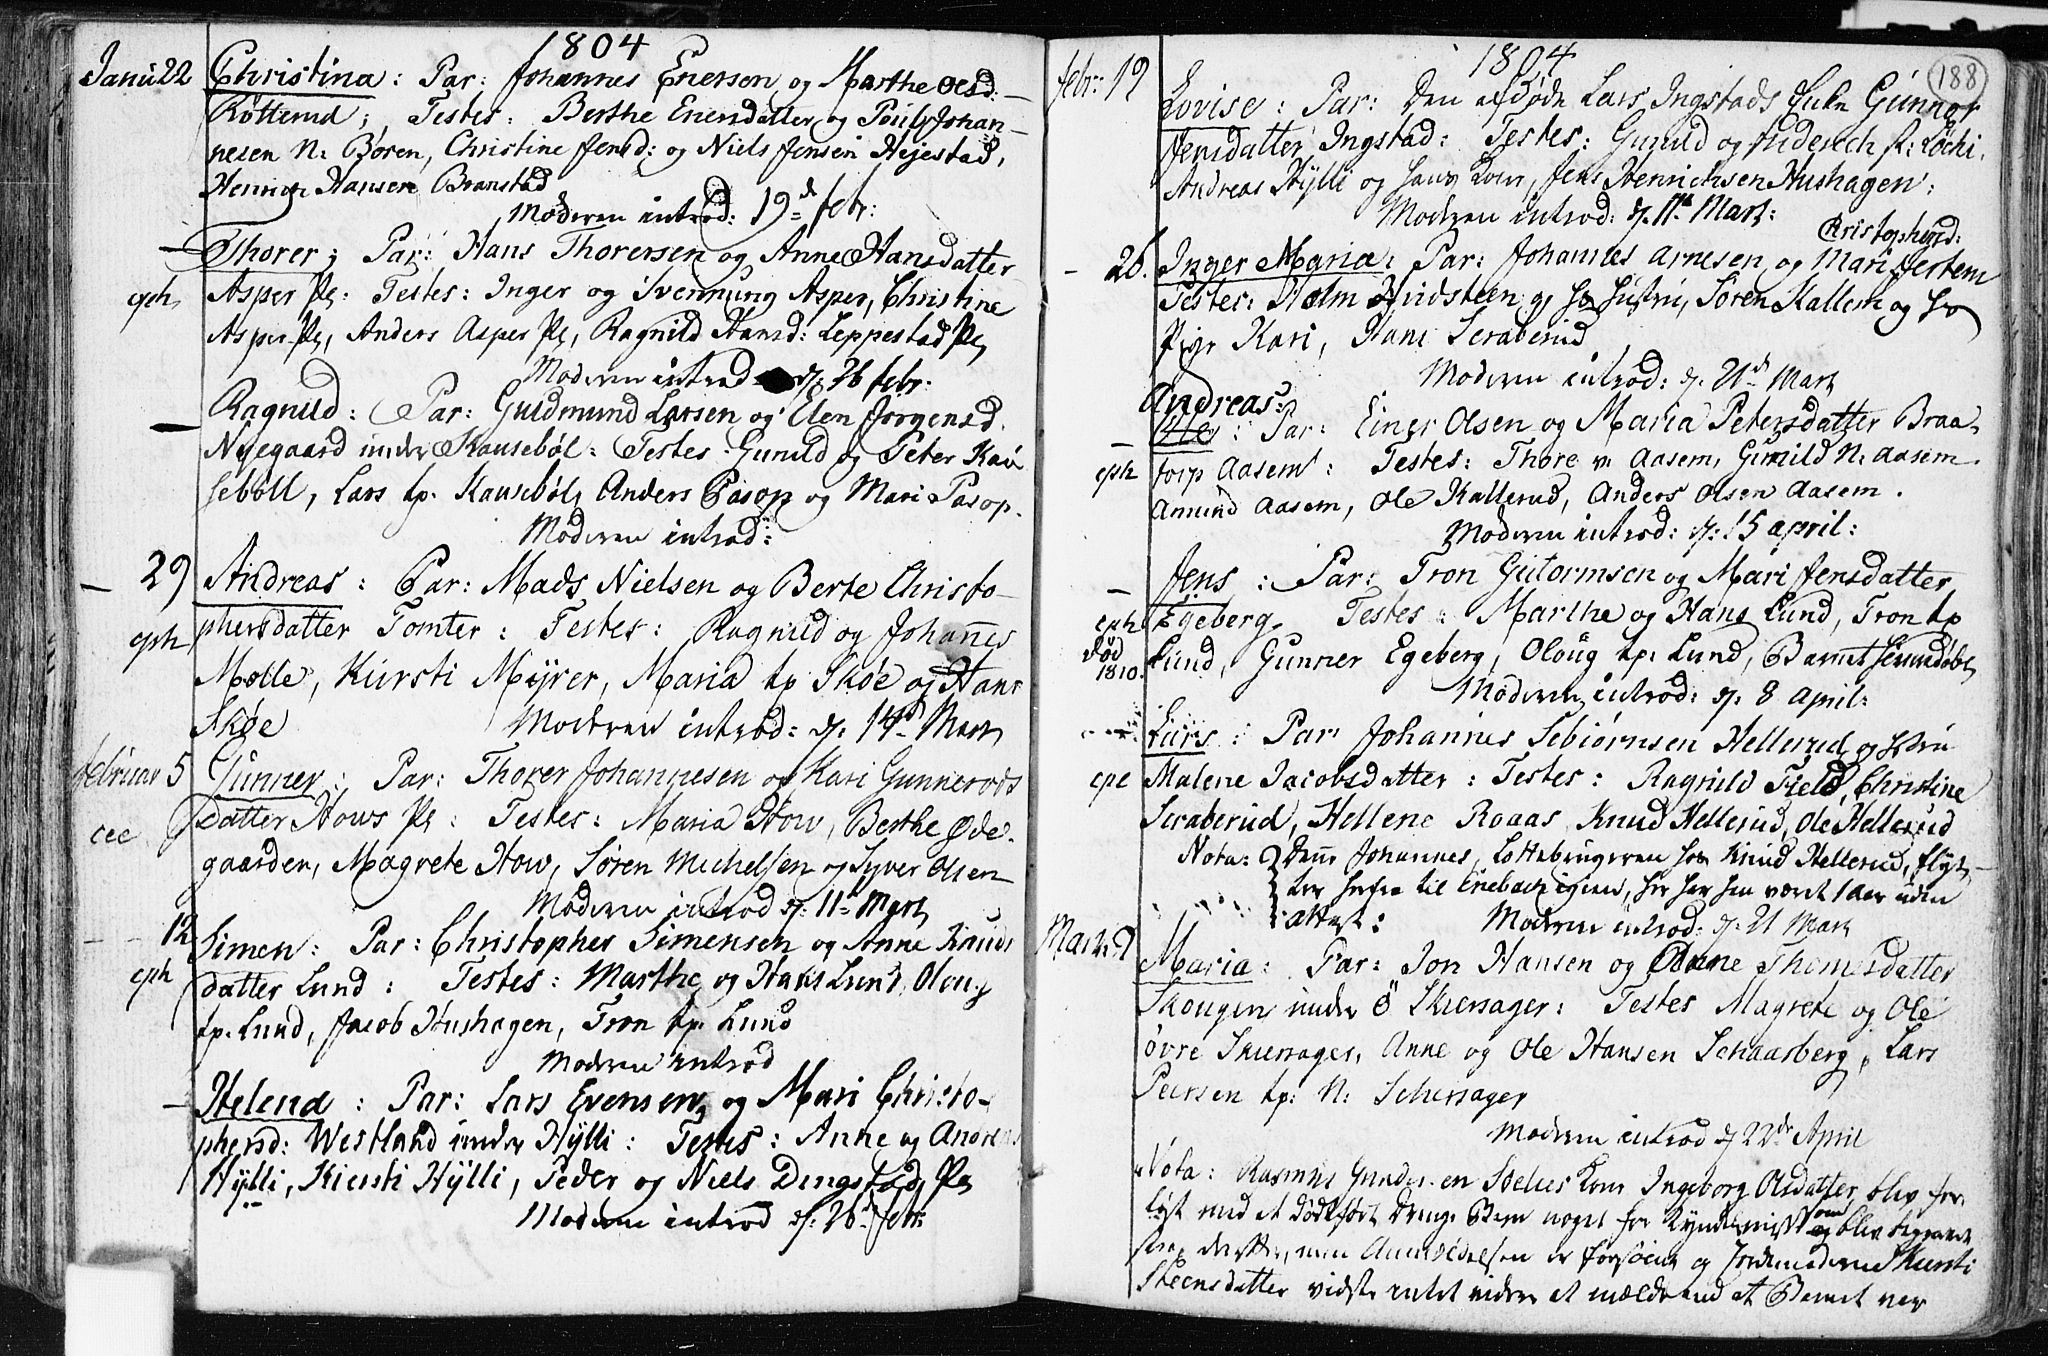 1804
Janu 22 Christina: Par: Johannes Enersen og Marthe Olsd:
Røtterud; Testes: Berthe Enersdatter og Povel Johan-
nesen N: Børen, Christine Jensd: og Niels Jensen Hejestad,
Henrich Hansen Branstad
Moderen introd: 19d febr:
Thorer; Par: Hans Thorersen og Anne Hansdatter
eph Asper Pl: Testes: Inger og Svennung Asper, Christine
Asper Pl, Anders Asper Pl, Ragnild Hansd: Leppestad Pl
Moderen introd d: 26 febr:
Ragnild: Par: Guldmund Larsen og Elen Jørgensd.
Nyegaard under Kausebøl: Testes: Gunild og Peter Kau
sebøll, Lars tp. Kausebøl, Anders Pasop og Mari Pasop.
Moderen introd:
29 Andreas: Par: Mads Nielsen og Berte Christo-
eph phersdatter Tomter: Testes: Ragnild og Johannes
Mølle, Kirsti Myrer, Maria tp Skøe og Hans
Skøe Moderen introd: d. 14d Mart
februar 5 Gunner: Par: Thorer Johannesen og Kari Gunnerods
cee datter Hows Pl: Testes: Maria How, Berthe Øde-
gaarden, Magrete How, Søren Michelsen og Syver Olsen
Moderen introd d: 11d Mart
12 Simen: Par: Christopher Simensen og Anne Knuds
eph datter Lund: Testes: Marthe og Hans Lund, Oloug
tp. Lund, Jacob Hushagen, Tron tp. Lund
Moderen introd
Helena: Par: Lars Evensen og Mari Christo-
phersd: Westland under Hÿlli: Testes: Anne og Andreas
Hÿlli, Kiersti Hÿlli, Peder og Niels Dingstad Pl
Moderen introd d: 26d febr:
188
1804
febr: 19 Lovise: Par: Den afdøde Lars Ingstads Enke Gunnor
Jensdatter Ingstad: Testes: Gunild og
Andreas Hÿlli og hans Kone, Jens Henrichsen Hushagen:
Moderen introd: d. 11d Mart:
Christophersd:
26. Inger Maria: Par: Johannes Arnesen og Mari Jestem
Testes: Holm Hvidsteen og hs Hustru, Søren Kallem og hs
Pige Kari, Hans Scraberud
Moderen introd: d. 21d Mart
Andreas:
Ole: Par: Einer Olsen og Maria Petersdatter Braa-
eph torp Aasem: Testes: Thore v: Aasem, Gunild N: Aasem
Amund Aasem, Ole Kallerud, Anders Olsen Aasem.
Moderen introd: d: 15 april:
Jens: Par: Tron Gutormsen og Mari Jensdatter
eph Egeberg. Testes: Marthe og Hans Lund, Tron tp
død 1810. Lund, Gunner Egeberg, Oloug tp: Lund, Barnet
Moderen introd: d: 8 april:
Lars: Par: Johannes Sebiørnsen Hellerud og
epe Malene Jacobsdatter: Testes: Ragnild Field, Christine
Scraberud, Hellene Roaas, Knud Hellerud, Ole Hellerud
Nota: Denne Johannes, hos Knud Hellerud, flyt-
ter herfra til Enebach igien, her har han været 1 aar uden
attest: Moderen introd: d: 21 Mart
Mart: Maria: Par: Jon Hansen og Anne Thomesdatter
Skougen under Ö Skiersager: Testes Magrete og Ole
øvre Skiersager, Anne og Ole Hansen Schaasberg, Lars
Peersen tp: N: Schersager
Moderen introd d 22de April
Nota: Rasmus en Kone Ingeborg Olsdatter blev for-
løst med et dødfødt Drenge Barn noget for Kyndelmisse og blev begravet
strax derefter, men er forsøeme og Jordemoderen Kiersti
Steensdatter vidste intet videre at melde end at Barnet var